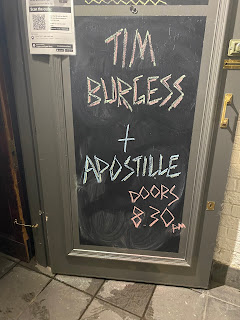 TIM
BURGESS
+
APOSTILLE
DOORS
8 30 PM